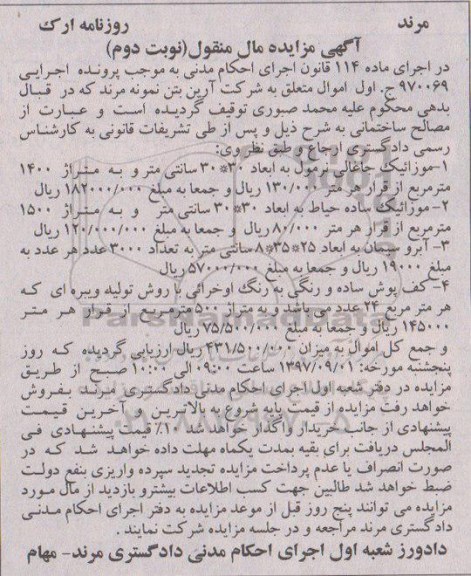 مرند
روزنامه ارک
آگهی مزایده مال منقول(نوبت دوم)
در اجرای ماده ۱۱۴ قانون اجرای احکام مدنی به موجب پرونده اجرایی
۹۷۰۰۶۹ ج. اول اموال متعلق به شرکت آرین بتن نمونه مرند که در قبال
بدهی محکوم علیه محمد صبوری توقیف گردیده است و عبارت از
مصالح ساختمانی به شرح ذیل و پس از طی تشریفات قانونی به کارشناس
رسمی دادگستری ارجاع و طبق نظر وی:
۱-موزائیک جاغالی پرمول به ابعاد ۳۰*۳۰ سانتی متر و به متراژ ۱۴۰۰
مترمربع از قرار هر متر ۱۳۰/۰۰۰ ریال و جمعا به مبلغ ۱۸۲۰۰۰/۰۰۰ ریال
۲- موزائیک ساده حیاط به ابعاد ۳۰*۳۰ سانتی متر و به متراژ ۱۵۰۰
مترمربع از قرار هر متر ۸۰/۰۰۰ ریال و جمعا به مبلغ ۱۲۰/۰۰۰/۰۰۰ ریال
۳- آبرو سیمان به ابعاد ۲۵*۳۵*۸ سانتی متر به تعداد ۳۰۰۰ عدد هر عدد به
مبلغ ۱۹۰۰۰ ریال و جمعا به مبلغ ۵۷۰۰۰/۰۰۰ ریال
۴- کف پوش ساده و رنگی به رنگ اوخرائی با روش تولیه ویبره ای که
هر متر مربع ۲۴ عدد می باشد و به متراژ ۵۰۰ مترمربع از قرار هر متر
۱۴۵۰۰۰ ریال و جمعا به مبلغ ۷۵/۵۰۰/۰۰۰ ریال
و جمع کل اموال به میزان ۴۳۱/۵۰۰/۰۰۰ ریال ارزیابی گردیده که روز
پنجشنبه مورخه: ۱۳۹۷/۰۹/۰۱ ساعت ۰۹:۰۰ الی ۱۰:۰۰ صبح از طریق
مزایده در دفتر شعبه اول اجرای احکام مدنی دادگستری مرند بفروش
خواهد رفت مزایده از قیمت پایه شروع به بالاترین و آخرین قیمت
پیشنهادی از جانب خریدار واگذار خواهد شد ۱۰٪ قیمت پیشنهادی فی
المجلس دریافت برای بقیه بمدت یکماه مهلت داده خواهد شد که در
صورت انصراف یا عدم پرداخت مزایده تجدید سپرده واریزی بنفع دولت
ضبط خواهد شد طالبین جهت کسب اطلاعات بیشترو بازدید از مال مورد
مزایده می توانند پنج روز قبل از موعد مزایده به دفتر اجرای احکام مدنی
دادگستری مرند مراجعه و در جلسه مزایده شرکت نمایند .
دادورز شعبه اول اجرای احکام مدنی دادگستری مرند- مهام